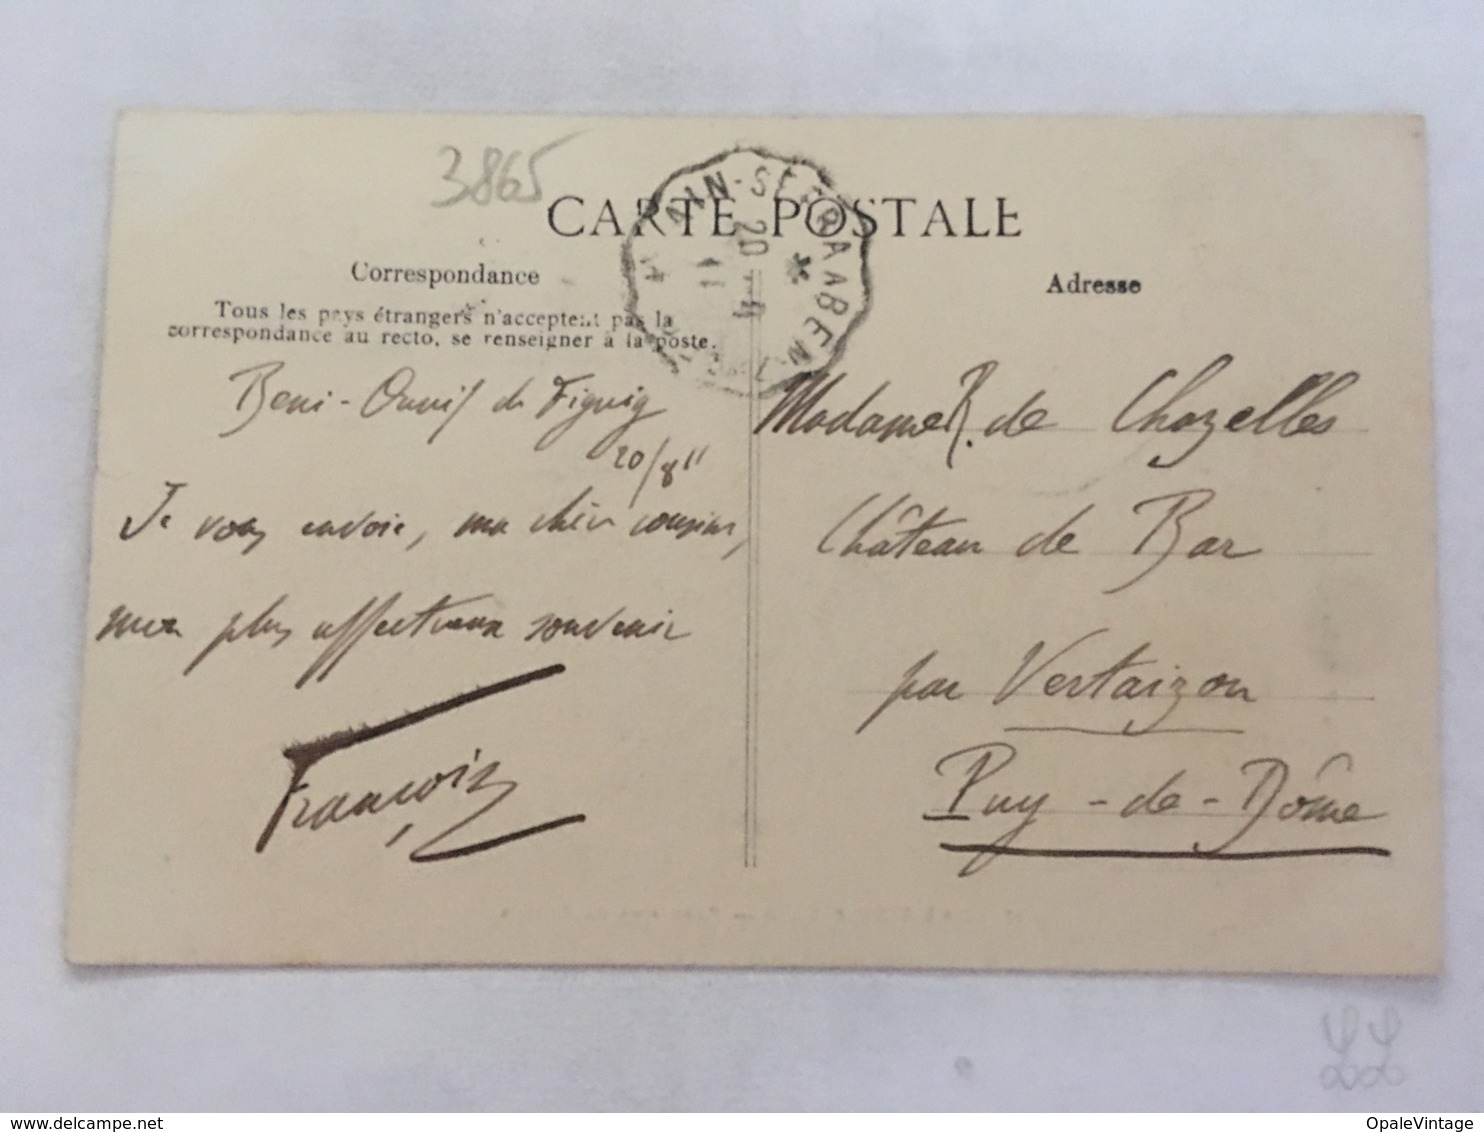 3865
CARTE POSTALE
Correspondance
Tous les pays étrangers n'acceptent pas la
correspondance au recto, se renseigner à la poste.
Beni-Ounif de Figuig
20/8 11
Je vous envoie, ma chère cousine,
mon plus affectueux souvenir
François
AÏN-SEFRA A BEN
20
11
Adresse
Madame R. de Chazelles
Château de Bar
par Vertaizon
Puy-de-Dôme
www.delcampe.net
OpaleVintage